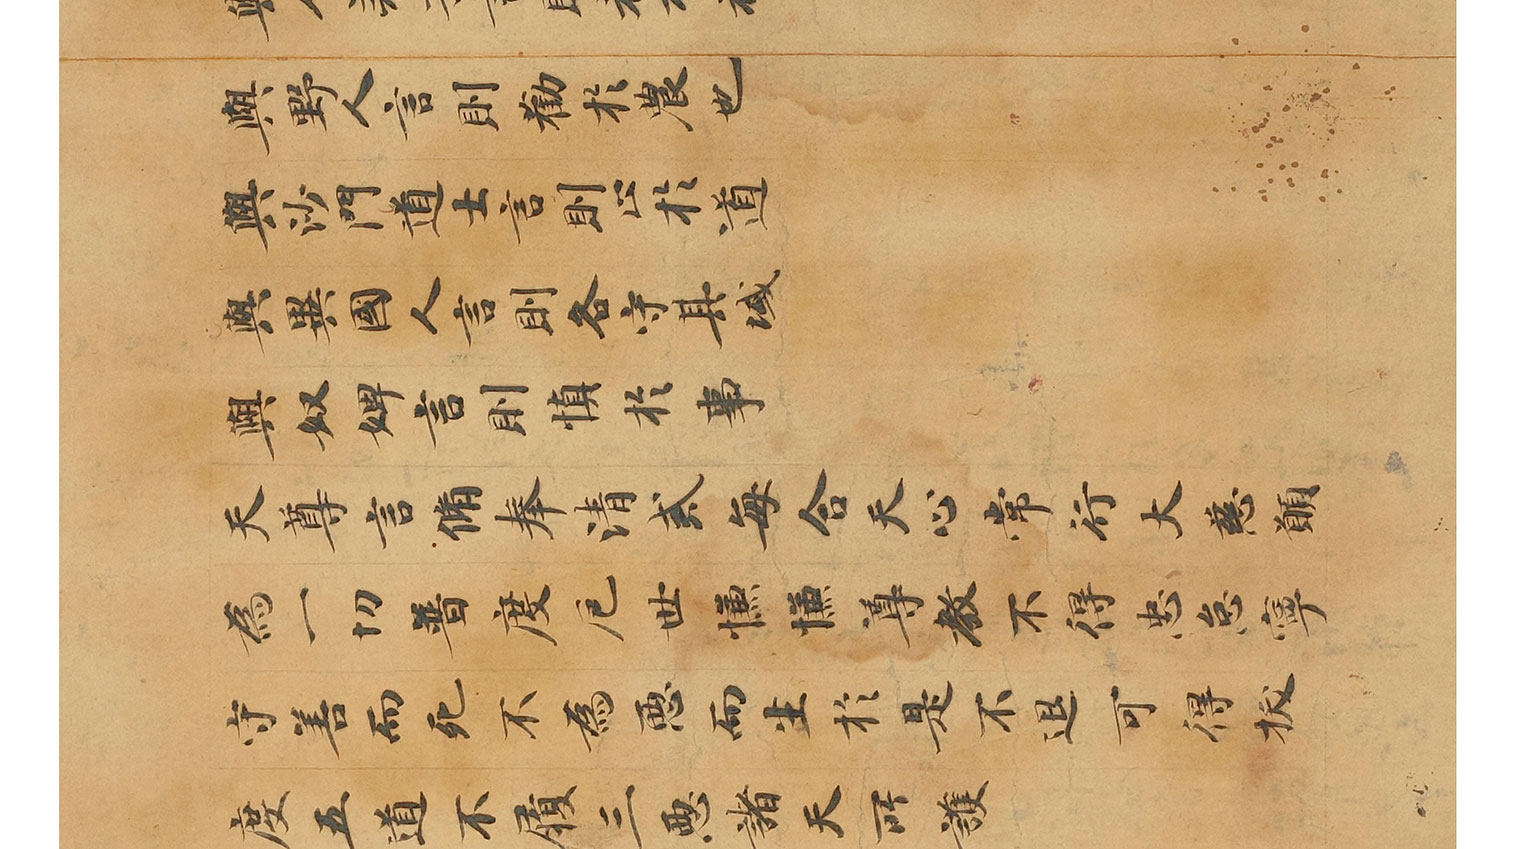 與野人言則勸於農也
與沙門道士言則止於道
與異國人言則各守其域
與奴婢言則慎於事
天尊言脩奉清戒每合天心常行大慈願
為一切普度厄世慊慊尊教不得忠怠寧
守善而死不為惡而生於是不退可得拔
度五道不履三惡諸天所護